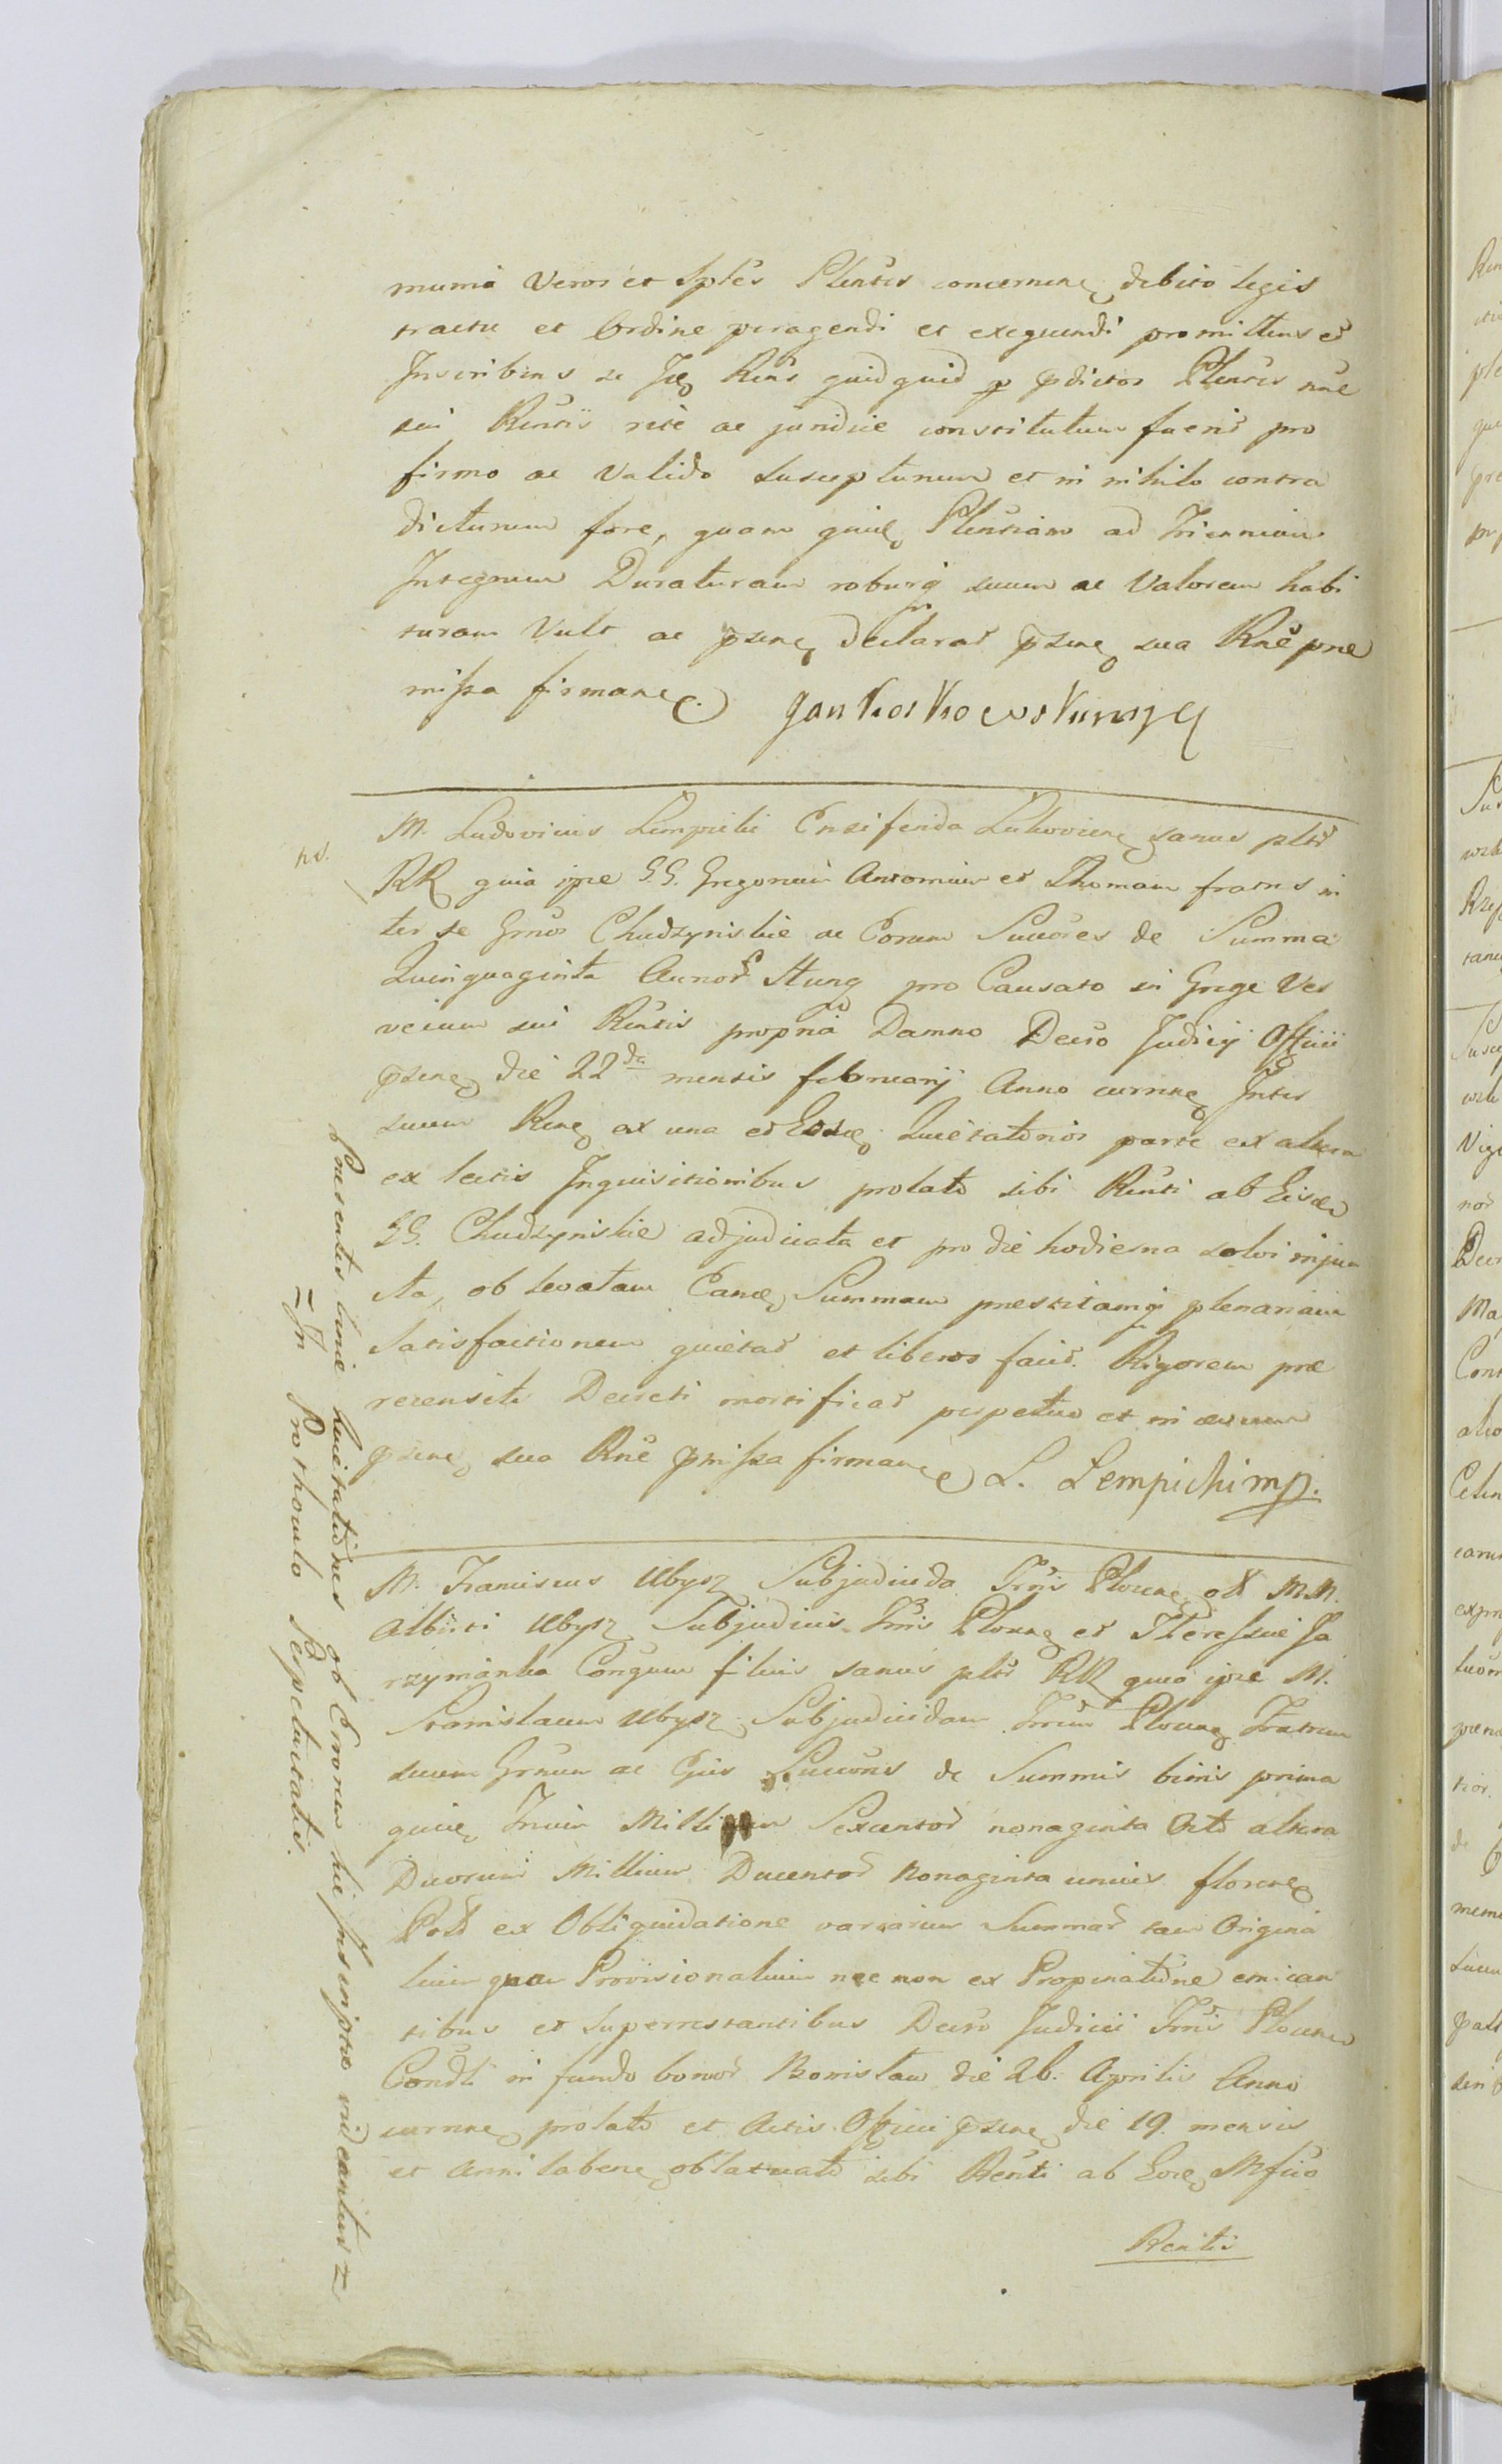 munia Veros et Sples Plentes concernene debito legis
tractu et Ordine peragendi et exequendi promittens et
Inscribens se Ide Rens quidquid p pdictos Plentes nne
sui Rentis rite ac juridice constitutum fuerit pro
firmo ac Valido suscepturum et in nihilo contra
dicturum fore, quam quid Plentiam ad Triennium
Integrum Duraturam roburq suum ac Valorem habi
turam Vult ac psene declarat psene sua Rne pre
missa firmane.
M. Ludovicus Lempicki Ensiferida Lukoviene sanus pltr
ns.
RR quia ipse GG. Gregorium Antonium et Thomam fratres in
ter se Gnos Chudzynskie ac Eorum Succres de Summa
Quinquaginta Aureor Hung pro Causato in Grege Ver
vecum sui Rentis propria Damno Decro Judicij Officii
psene die 22da mensis februarij Anno currne Inter
suum Rene ex una et Eosde Quietatorios parte ex altera
ex lectis Inquisitionibus prolato sibi Renti ab Eisde
GG. Chudzynskie adjudicata et pro die hodierna solvi injun
cta, ob levatam Eande Summam prestitamq plenariam
Satisfactionem quietat et liberos facit. Rigorem præ
recensiti Decreti mortificat perpetuo et in ævum
psene sua Rne pmissa firmane L. Lempicki mp.
M. Franciscus Ubysz Subjudicida Tris Plocene olt MM.
Alberti Ubysz Subjudicis Tris Plocene et Theressiæ Ja
rzymanka Conjgum filius sanus pltr RR quia ipse M.
Stanislaum Ubysz Subjudicidam Trrem Plocene Fratrem
suum Grnum ac Ejus Succres de Summis binis prima
quide Trium Millium Sexentor nonaginta Octo altera
Duorum Millium Ducentor Nonaginta unius florene
Pold ex Obliquidatione variarum Summar tam Origina
lium quam Provisionalium nec non ex Propinatione emican
tibus et superrestantibus Decro Judicii Tris Plocene
Condti in fundo bonor Borisław die 26. Aprilis Anno
currne prolato et Actis Officii psene die 19. mensis
et Anni labene oblatuato sibi Renti ab Eode Mfico
Rentis
Presentes binæ Quietationes ob Errorem hic Inscriptæ videantur =
= In Prothoculo Perpetuitatis.